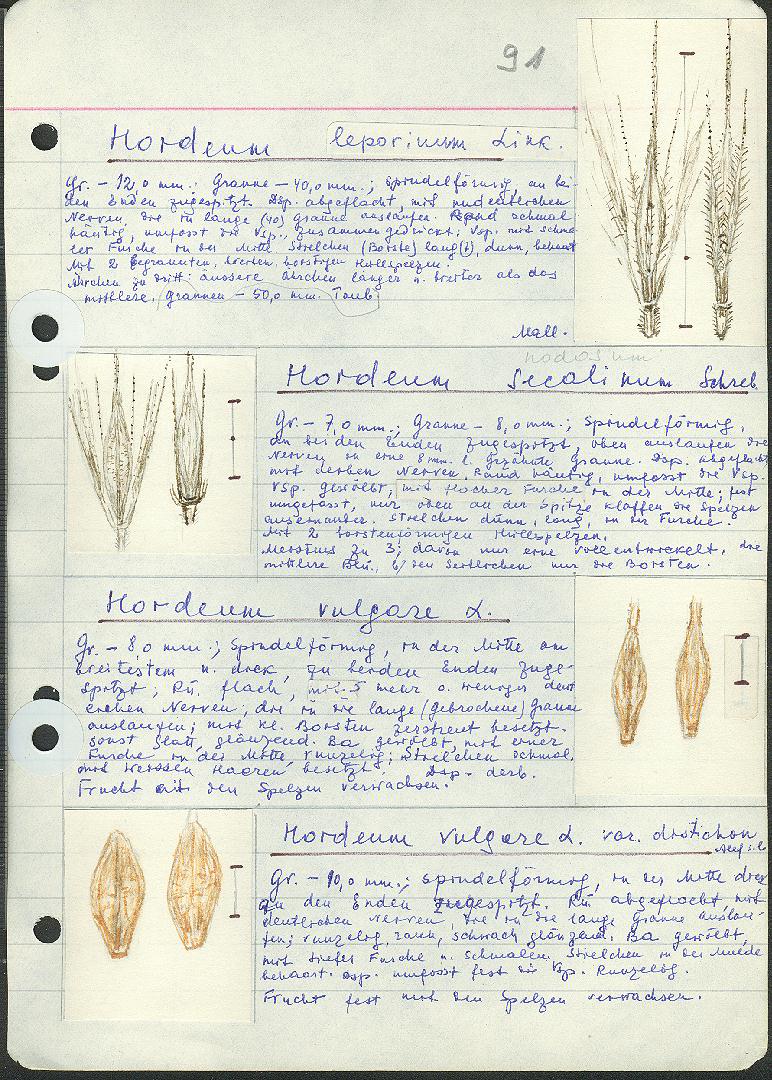 91
Hordeum leporinum Link.
Gr. – 12,0 mm.; Granne – 40,0 mm.; spindelförmig, an bei-
den Enden zugespitzt. Dsp. abgeflacht, mit undeutlichen
Nerven, die in lange (40) Granne auslaufen. Rand schmal
häutig, umfasst die Vsp., zusammengedrückt; Vsp. mit schma-
ler Furche in der Mitte. Stielchen (Borste) lang(t), dünn, behaart
Mit 2 begrannten, borstigen Hüllspelzen.
Ährchen zu dritt: äussere Ährchen länger u. breiter als das
mittlere, Grannen – 50,0 mm. Taub
Mall.
nodosum
Hordeum secalinum Schreb
Gr. – 7,0 mm.; Granne – 8,0 mm.; spindelförmig,
an beiden Enden zugespitzt, oben auslaufen die
Nerven in eine 8 mm. l. gezähnte Granne. Dsp. abgeflacht
mit derben Nerven. Rand häutig, umfasst die Vsp.
Vsp. gewölbt, mit flacher Furche in der Mitte; fest
umgefasst, nur oben an der Spitze klaffen die Spelzen
auseinander. Stielchen dünn, lang, in der Furche.
Mit 2 borstenförmigen Hüllspelzen.
Meistens zu 3; davon nur eine voll entwickelt, die
mittlere Blü., b/ den Seitlichen nur die Borsten.
Hordeum vulgare L.
Gr. – 8,0 mm.; spindelförmig, in der Mitte am
breitestem u. dick, zu beiden Enden zuge-
spitzt; Rü. flach, mit 5 mehr o. weniger deut
lichen Nerven, die in die lange (gebrochene) Granne
auslaufen; mit kl. Borsten zerstreut besetzt.
sonst glatt, glänzend. Ba gewölbt, mit einer
Furche in der Mitte, runzelig; Stielchen schmal,
mit weissen Haaren besetzt. Dsp. derb.
Frucht mit den Spelzen verwachsen.
Hordeum vulgare L. var. distichon
Gr. – 10,0 mm.; spindelförmig, in der Mitte dick
zu den Enden zugespitzt. Rü abgeflacht, mit
deutlichen Nerven, die in die lange Granne auslau-
fen; runzelig, rauh, schwach glänzend. Ba gewölbt,
mit tiefer Furche u. schmalem Stielchen in der Mulde
behaart. Dsp. umfasst fest die Vsp. Runzelig.
Frucht fest mit den Spelzen verwachsen.